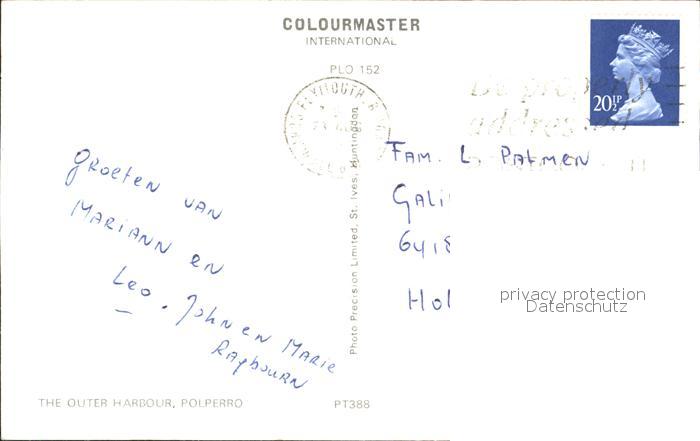 COLOURMASTER
INTERNATIONAL
PLO 152
PLYMOUTH
20½P
Be properly
addressed
Groeten van
Mariann en
Leo. John en Marie
Raybourn
Photo Precision Limited, St. Ives, Huntingdon
Fam. L. Palmen
Gali
6418
Hol
privacy protection
Datenschutz
THE OUTER HARBOUR, POLPERRO
PT388